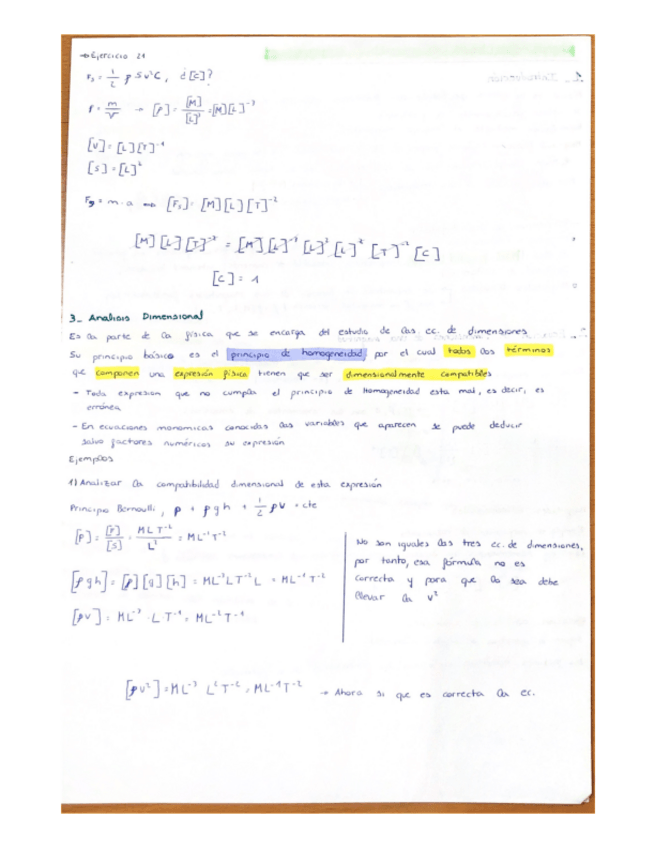 → Ejercicio 21
F₃ = 1/2 ρ S v² C, ¿[C]?
ρ = m/V → [ρ] = [M]/[L]³ = [M][L]⁻³
[V] = [L][T]⁻¹
[S] = [L]²
F = m · a ⇒ [F] = [M][L][T]⁻²
[M][L][T]⁻² = [M][L]⁻³ [L]² [L]² [T]⁻² [C]
[C] = 1
3_ Analisis Dimensional
Es la parte de la física que se encarga del estudio de las ec. de dimensiones
Su principio básico es el principio de homogeneidad, por el cual todos los términos
que componen una expresión física tienen que ser dimensionalmente compatibles
- Toda expresion que no cumpla el principio de Homogeneidad esta mal, es decir, es
errónea
- En ecuaciones monomicas conocidas las variables que aparecen se puede deducir
salvo factores numéricos su expresión
Ejemplos
1) Analizar la compatibilidad dimensional de esta expresión
Principio Bernoulli, p + ρgh + 1/2 ρv = cte
[P] = [F]/[S] = MLT⁻²/L² = ML⁻¹T⁻²
[ρgh] = [ρ][g][h] = ML⁻³LT⁻²L = ML⁻¹T⁻²
[ρv] = ML⁻³ · LT⁻¹ = ML⁻²T⁻¹
No son iguales las tres ec. de dimensiones,
por tanto, esa fórmula no es
correcta y para que lo sea debe
llevar la v²
[ρv²] = ML⁻³ L²T⁻² = ML⁻¹T⁻² → Ahora si que es correcta la ec.